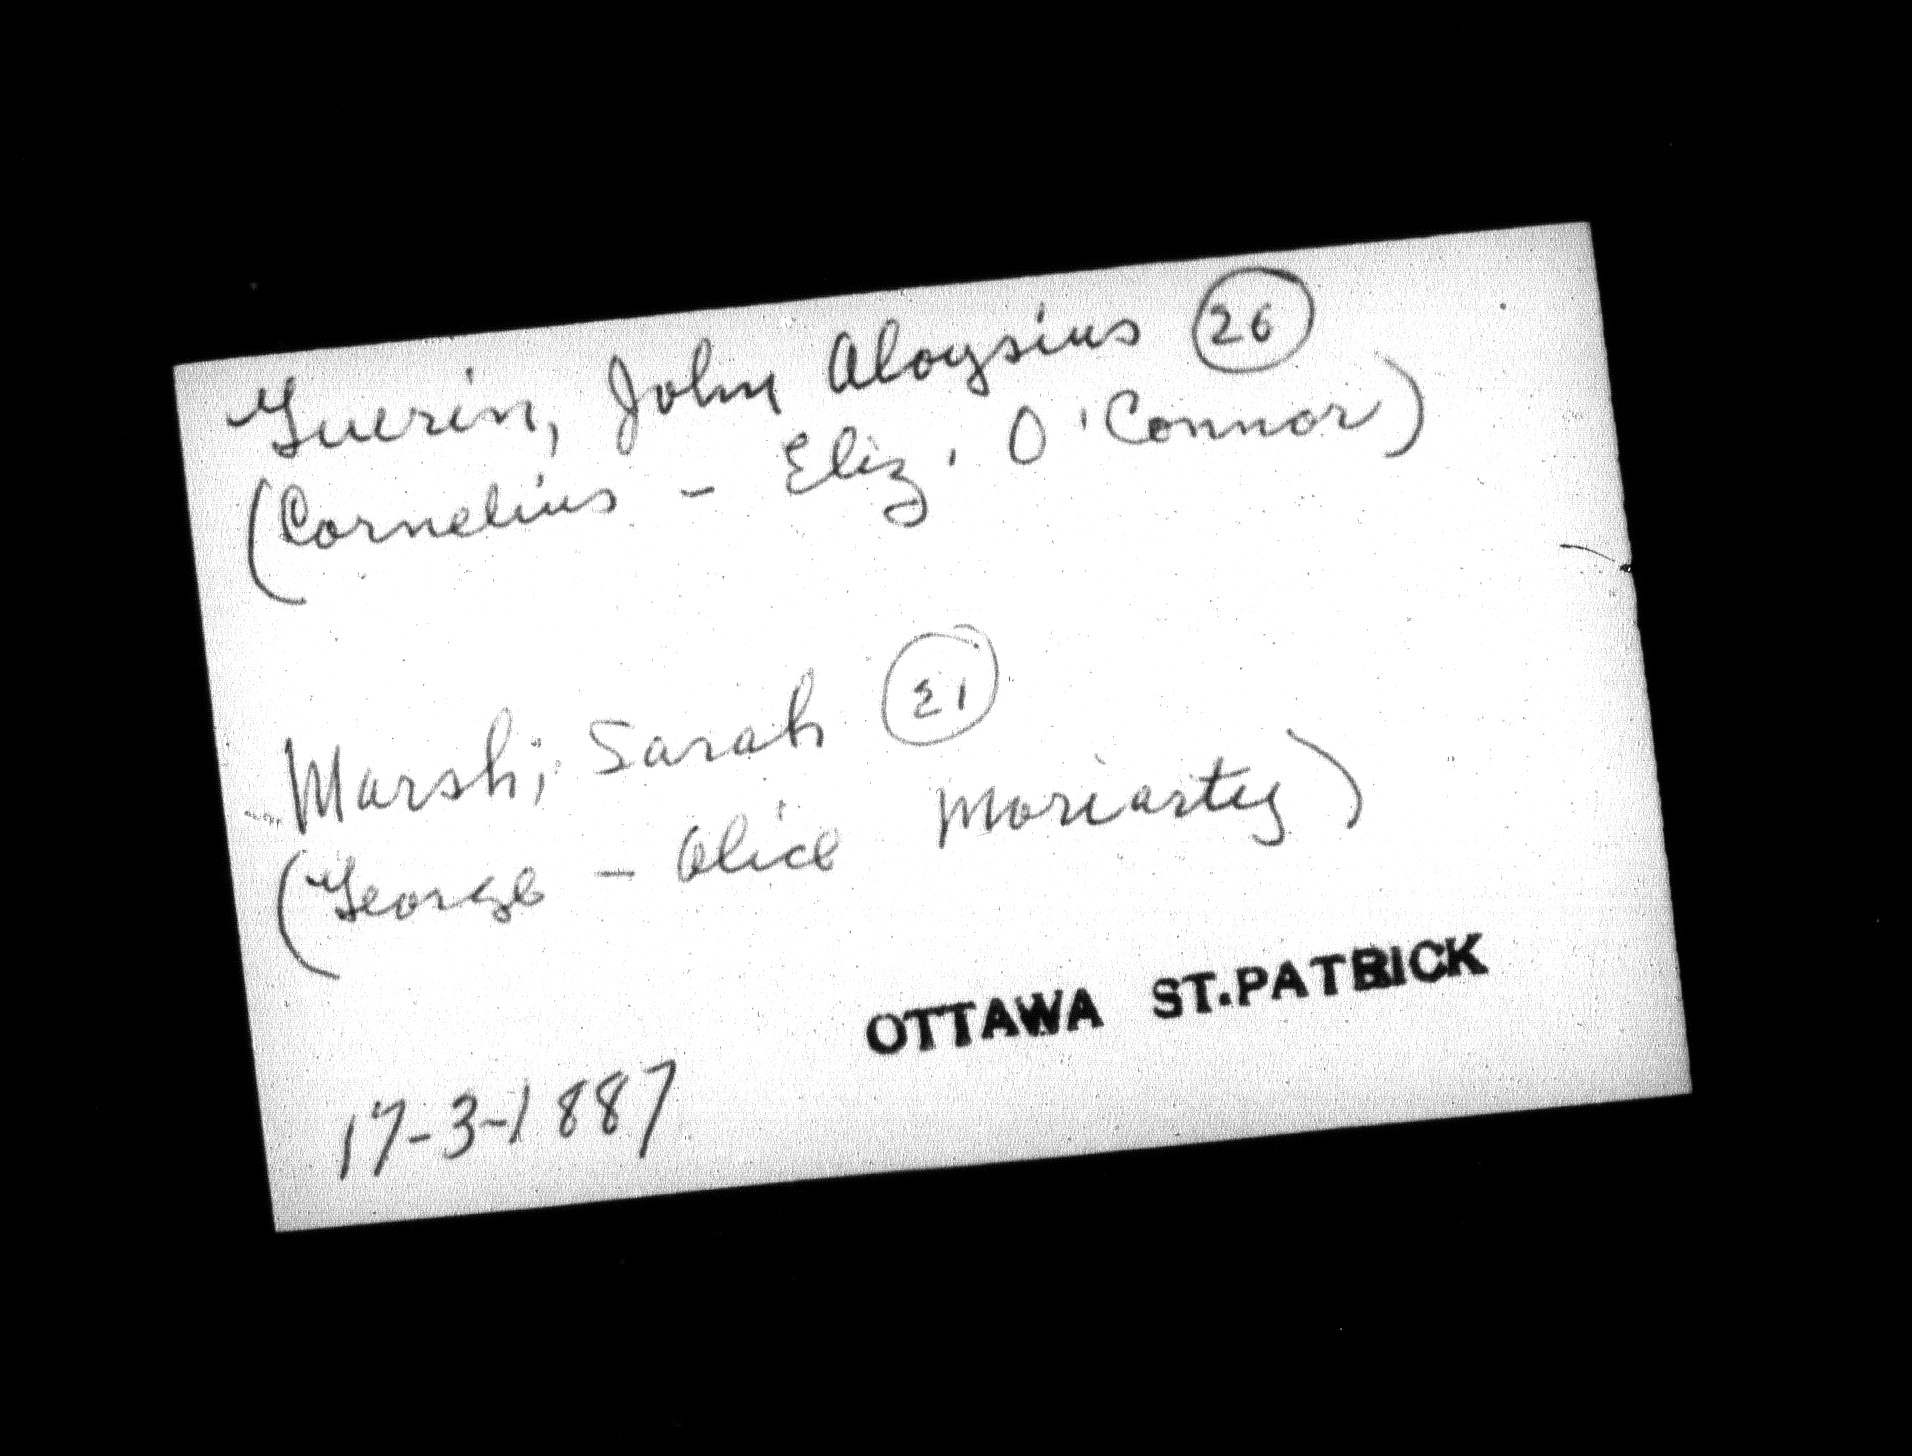 Guerin, John Aloysius 26
(Cornelius - Eliz. O'Connor)
Marsh, Sarah 21
(George - Alice Moriarty)
OTTAWA ST.PATRICK
17-3-1887